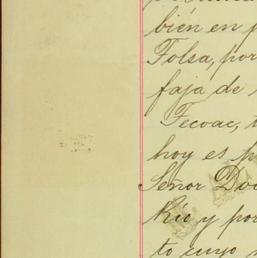 bién en p
Tolsa, por
faja de
Tecoac,
hoy es p
Señor Do
Río y por
to cuyo